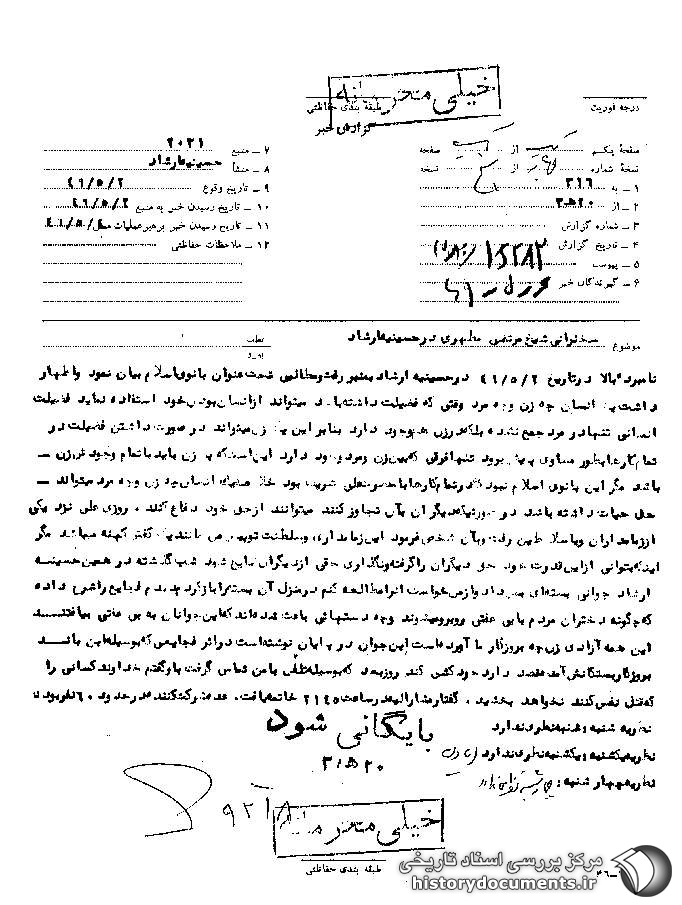 خیلی محرمانه
درجه فوریت
طبقه بندی حفاظتی
گزارش خبر
صفحهٔ یکم از صفحه
نسخهٔ شماره از نسخه
۱ ـ به ۳۱۶
۲ ـ از ۲۰ ه ۳
۳ ـ شماره گزارش
۴ ـ تاریخ گزارش
۵ ـ پیوست
۶ ـ گیرندگان خبر
۷ ـ منبع ۲۰۲۱
۸ ـ منشأ حسینیه ارشاد
۹ ـ تاریخ وقوع ۴۶/۵/۲
۱۰ ـ تاریخ رسیدن خبر به منبع ۴۶/۵/۲
۱۱ ـ تاریخ رسیدن خبر برهبر عملیات
۱۲ ـ ملاحظات حفاظتی
موضوع سخنرانی شیخ مرتضی مطهری در حسینیه ارشاد
عطف
نامبرده بالا در تاریخ ۴۶/۵/۲ در حسینیه ارشاد بمنبر رفت و مطالبی تحت عنوان بانوی اسلام بیان نمود و اظهار
داشت یک انسان چه زن و چه مرد وقتی که فضیلت داشته باشد میتواند از انسان بودن خود استفاده نماید فضیلت
انسانی تنها در مرد جمع نشده بلکه در زن هم وجود دارد بنابر این یک زن میتواند در صورت داشتن فضیلت در
تمام کارها بطور مساوی پیش برود تنها فرقی که بین زن و مرد وجود دارد این است که یک زن باید با تمام وجود خود زن ـ
باشد مگر این بانوی اسلام نبود که در تمام کارها با حضرت علی شریک بود خلاصه یک انسان چه زن و چه مرد میتواند ـ
حق حیات داشته باشد در صورتیکه دیگران بآن تجاوز کنند میتوانند از حق خود دفاع کنند ، روزی علی نزد یکی
از زمامداران رفت و بآن شخص فرمود این زمامداری و سلطنت تو پیش من مانند یک کفش کهنه میباشد مگر
اینکه بتوانی از این قدرت خود حق دیگران را گرفته و نگذاری حقی از دیگران ضایع شود شب گذشته در همین حسینیه
ارشاد جوانی بسته‌ای بمن داد و از من خواست آنرا مطالعه کنم در منزل آن بسته را باز کرده دیدم فجایع را شرح داده
که چگونه دختران مردم با بی عفتی روبرو میشوند و چه دستهائی باعث شده‌اند که این جوانان به بی عفتی بیافتند
این همه آزادی زن چه بروزگار ما آورده است این جوان در پایان نوشته است در اثر فجایعی که بوسیله این باند
بروزگار بستگانش آمده قصد دارد خودکشی کند روز بعد که بوسیله تلفن با من تماس گرفت باو گفتم خداوند کسانی را
که قتل نفس کنند نخواهد بخشید ، گفتار مشارالیه در ساعت ۲۱۴۵ خاتمه یافت . عده شرکت کننده در حدود ۶۰۰ نفر بود
نظریه شنبه و شنبه نظری ندارد
نظریه یکشنبه و یکشنبه نظری ندارد
نظریه چهار شنبه :
بایگانی شود
۲۰ ه ۳
خیلی محرمانه
طبقه بندی حفاظتی
مرکز بررسی اسناد تاریخی
historydocuments.ir